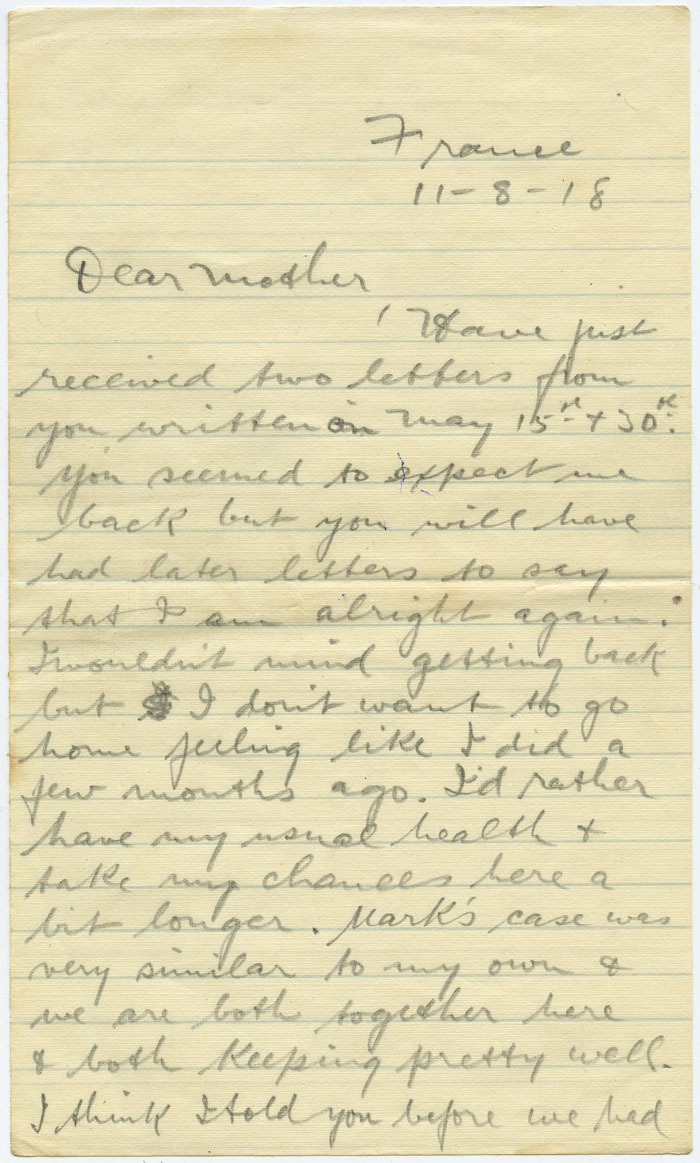 France
11-8-18
Dear Mother
Have just
received two letters from
you written on May 15th + 30th.
You seemed to expect me
back but you will have
had later letters to say
that I am alright again.
I wouldn't mind getting back
but I don't want to go
home feeling like I did a
few months ago. I'd rather
have my usual health &
take my chances here a
bit longer. Mark's case was
very similar to my own &
we are both together here
& both keeping pretty well.
I think I told you before we had